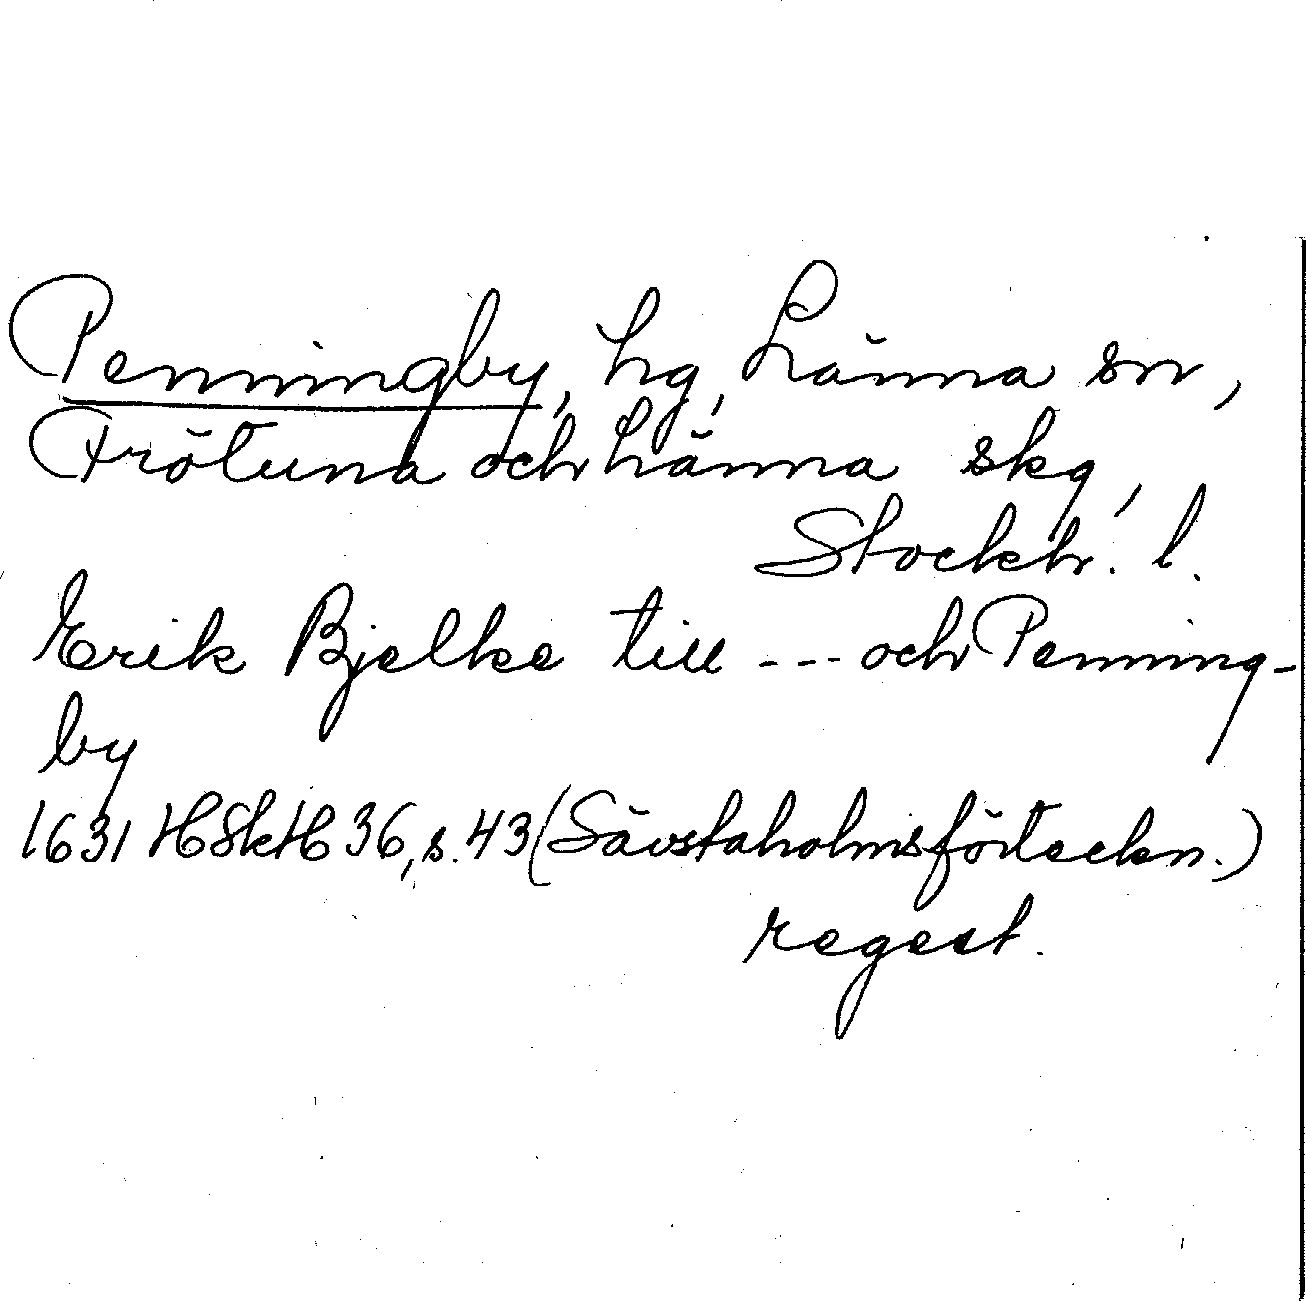 Penningby, hg, Länna sn,
Frötuna och Länna skg,
Stockh. l.
Erik Bjelke till --- och Penning-
by
1631 HSkH 36, s. 43 (Sävstaholmsförteckn.)
regest.